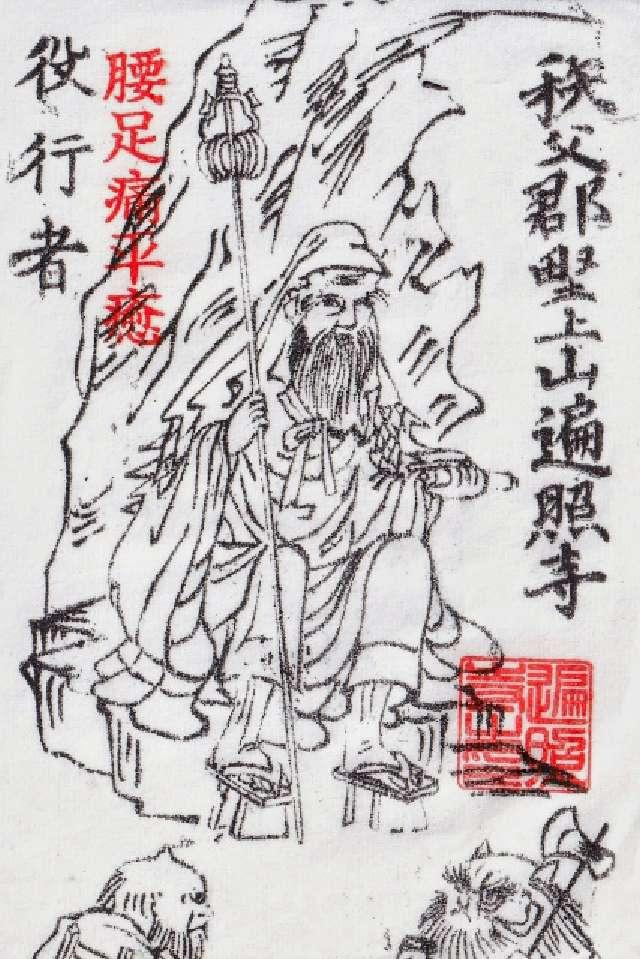 秩父郡野上山遍照寺
腰足痛平癒
役行者
遍照